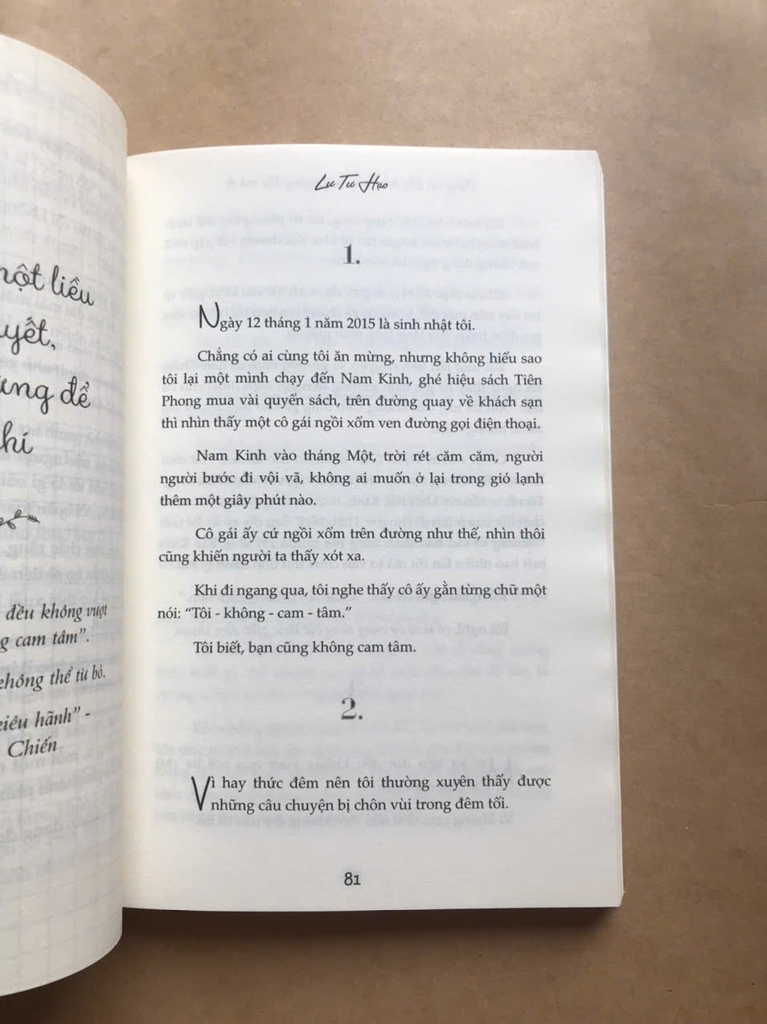 một liều
đều không vượt
cam tâm".
không thể từ bỏ.
kiêu hãnh" -
Chiến
Lư Tư Hạo
1.
Ngày 12 tháng 1 năm 2015 là sinh nhật tôi.
Chẳng có ai cùng tôi ăn mừng, nhưng không hiểu sao
tôi lại một mình chạy đến Nam Kinh, ghé hiệu sách Tiên
Phong mua vài quyển sách, trên đường quay về khách sạn
thì nhìn thấy một cô gái ngồi xổm ven đường gọi điện thoại.
Nam Kinh vào tháng Một, trời rét căm căm, người
người bước đi vội vã, không ai muốn ở lại trong gió lạnh
thêm một giây phút nào.
Cô gái ấy cứ ngồi xổm trên đường như thế, nhìn thôi
cũng khiến người ta thấy xót xa.
Khi đi ngang qua, tôi nghe thấy cô ấy gằn từng chữ một
nói: "Tôi - không - cam - tâm."
Tôi biết, bạn cũng không cam tâm.
2.
Vì hay thức đêm nên tôi thường xuyên thấy được
những câu chuyện bị chôn vùi trong đêm tối.
81